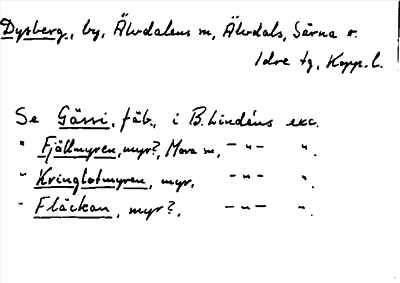 Dysberg, by, Älvdalens sn, Älvdals, Särna o.
Idre tg, Kopp. l.
Se Gässi, fäb., i B. Lindéns exc.
" Fjällmyren, myr?, Mora sn, – " – ".
" Kringlotmyren, myr, – " – ".
" Fläckan, myr?, – " – ".